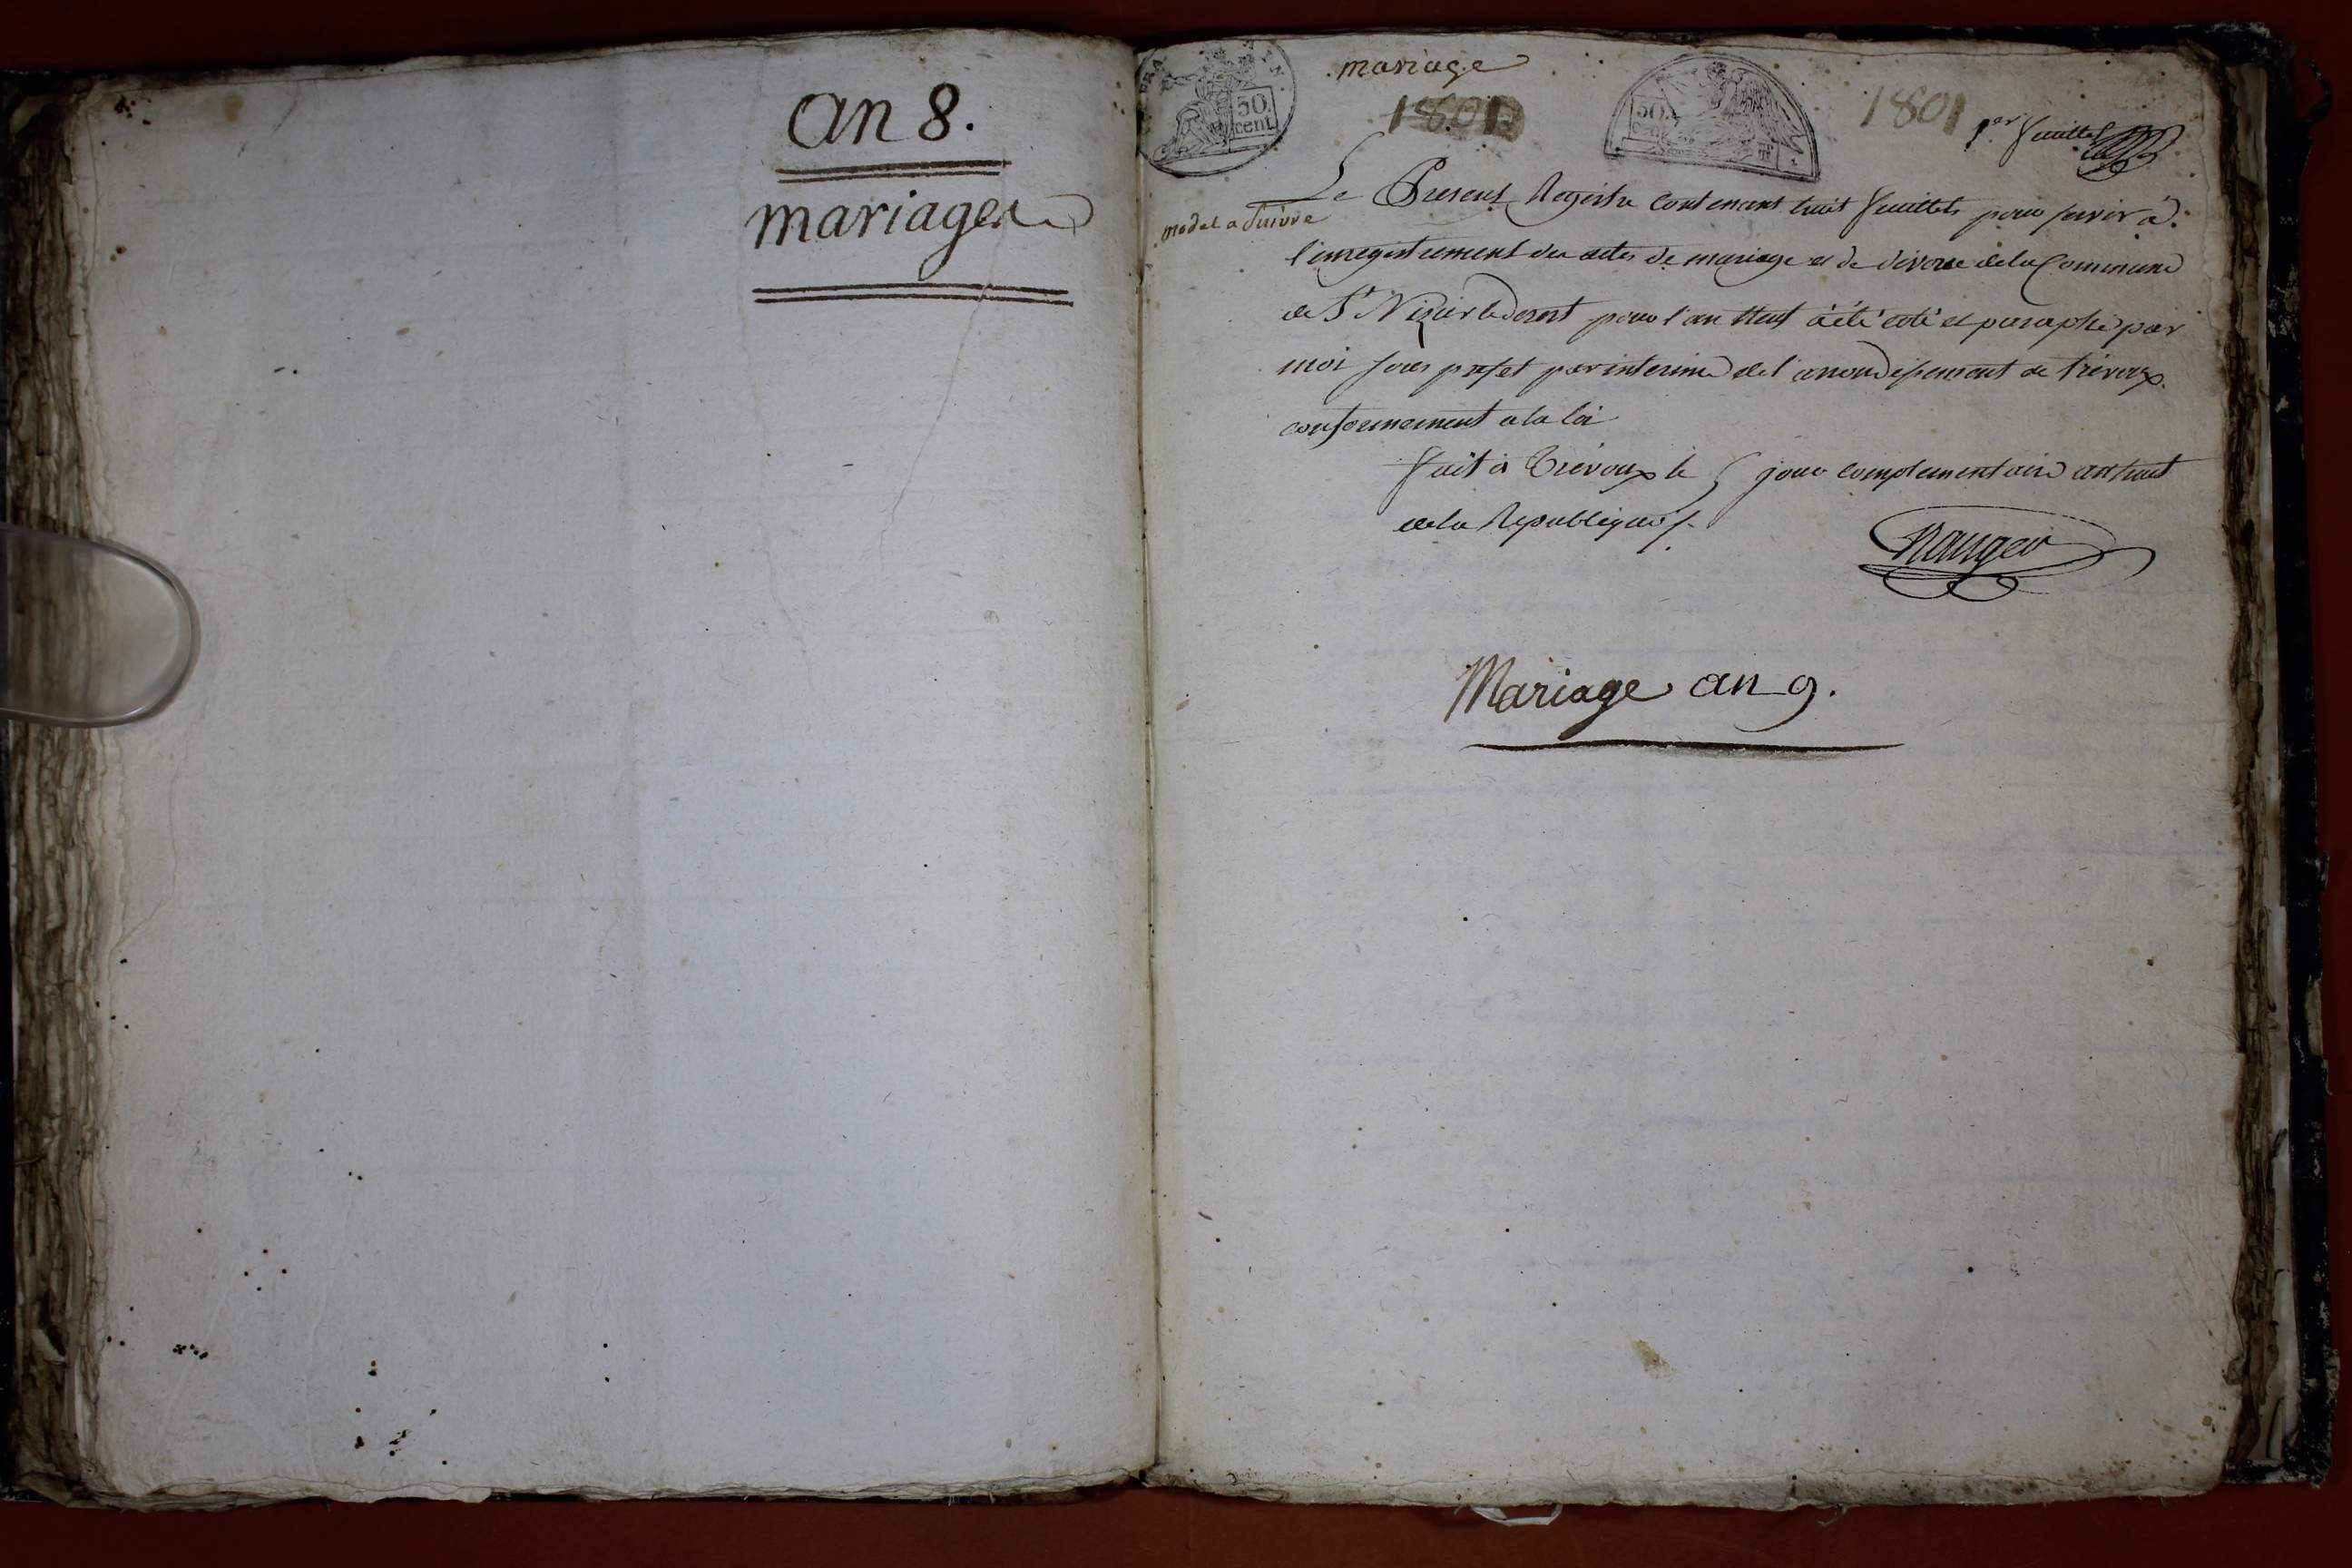 an 8.
mariages
mariage
50 cent
1801
50 cent
1801
1.er feuillet
model a Suivre
Le Present Registre contenant huit feuillets pour servir à
l'enregistrement des actes de mariage et de divorce de la Commune
de St Nizier le desert pour l'an neuf à été coté et paraphé par
moi sous prefet par interim de l'arrondissement de Trevoux
conformement a la loi
fait à Trevoux le 5 jour complementaire an huit
de la Republique
Mariage an 9.